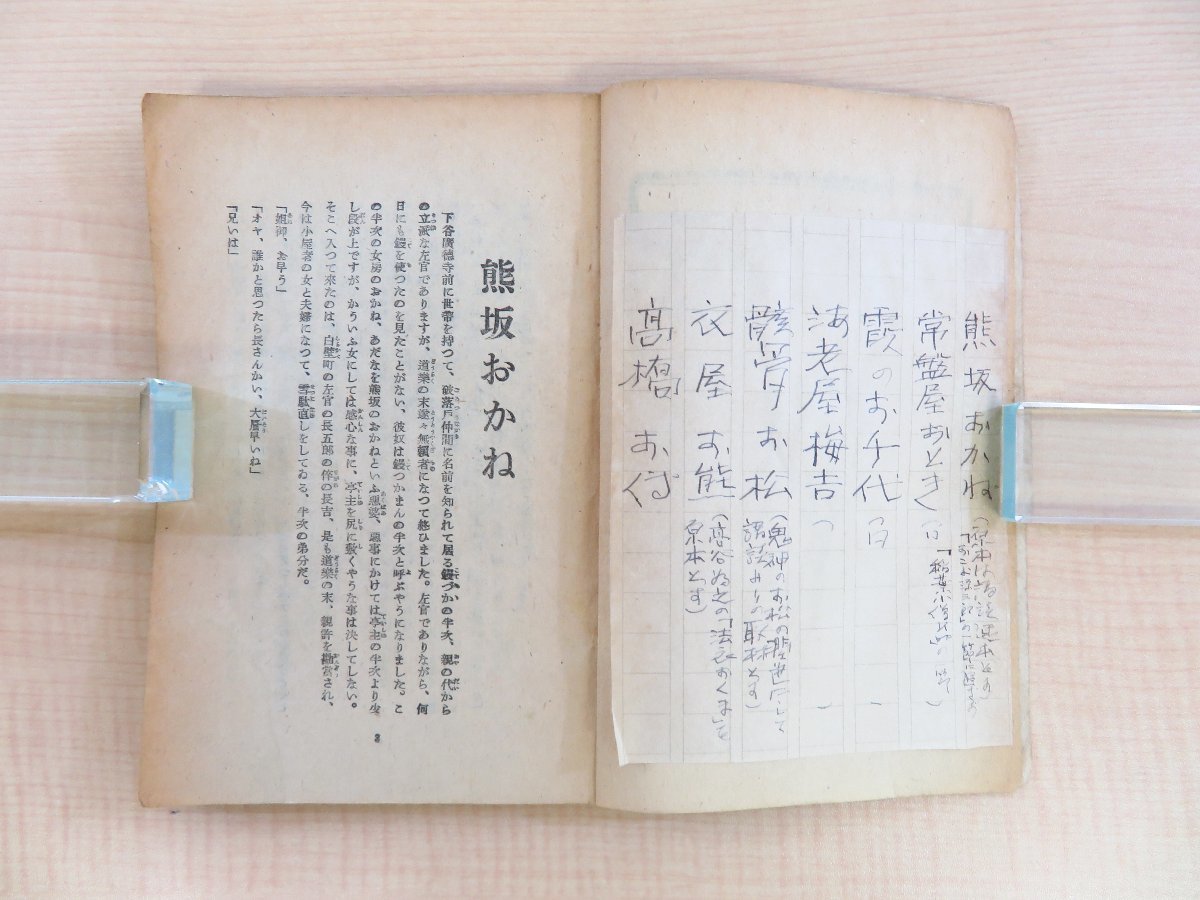 熊坂おかね
常盤屋おとき
「稲葉小僧
霞のお千代
海老屋梅吉
骸骨お松
(鬼神のお松の
講談よりの取材とす)
衣屋お熊
原本とす)
高橋お伝
熊坂おかね
下谷廣德寺前に世帶を持つて、破落戸仲間に名前を知られて居る鏝づかの半次、親の代から
の立派な左官でありますが、道樂の末遂々無賴者になつて終ひました。左官でありながら、何
日にも鏝を使つたのを見たことがない、彼奴は鏝つかまんの半次と呼ぶやうになりました。こ
の半次の女房のおかね、あだなを熊坂のおかねといふ惡婆、惡事にかけては亭主の半次より少
し段が上ですが、かういふ女にしては感心な事に、亭主を尻に敷くやうな事は決してしない。
そこへ入つて來たのは、白壁町の左官の長五郎の倅の長吉、是も道樂の末、親許を勘當され、
今は小屋者の女と夫婦になつて、雪駄直しをしてゐる、半次の弟分だ。
「姐御、お早う」
「オヤ、誰かと思つたら長さんかい、大層早いね」
「兄いは」
3